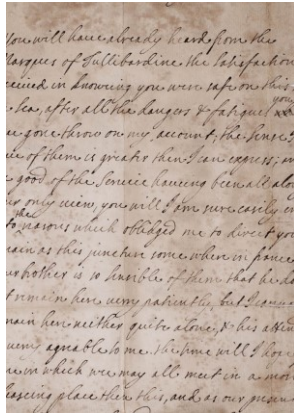 You will have already heard from the
Marques of Tullibardine the Satisfaction
received in knowing you were safe on this
Sea, after all the dangers & fatigues you
have gone throw on my account, the Sense
of them is greater then I can express;
good of the Service haveing been all alo
only view, you will I am sure easily
the reasons which obliedged me to direct you
main at this juncture some where in france
brother is so sensible of them that he
remain here very patiently but I
main here neither quite alone, & his
very agreable to me. the time will I hope
in which we may all meet in a mor
pleasing place then this, and as our presen